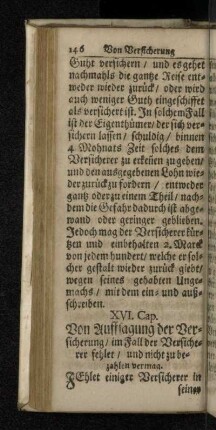 146 Von Versicherung
Guht versichern / und es gehet
nachmahls die gantze Reise ent-
weder wieder zurück / oder wird
auch weniger Guth eingeschiffet
als versichert ist. In solchem Fall
ist der Eigenthümer / der sich ver-
sichern lassen / schuldig / binnen
4 Mohnats Zeit solches dem
Versicherer zu erkeñen zu geben /
und den ausgegebenen Lohn wie-
der zurück zu fordern / entweder
gantz oder zu einem Theil / nach-
dem die Gefahr dadurch ist abge-
wand oder geringer geblieben.
Jedoch mag der Versicherer kür-
tzen und einbehalten 2. Marck
von jedem hundert / welche er sol-
cher gestalt wieder zurück giebt /
wegen seines gehabten Unge-
machs / mit dem ein- und auß-
schreiben.
XVI. Cap.
Von Auffsagung der Ver-
sicherung / im Fall der Versiche-
rer fehlet / und nicht zu be-
zahlen vermag.
FEhlet einiger Versicherer in
seinen